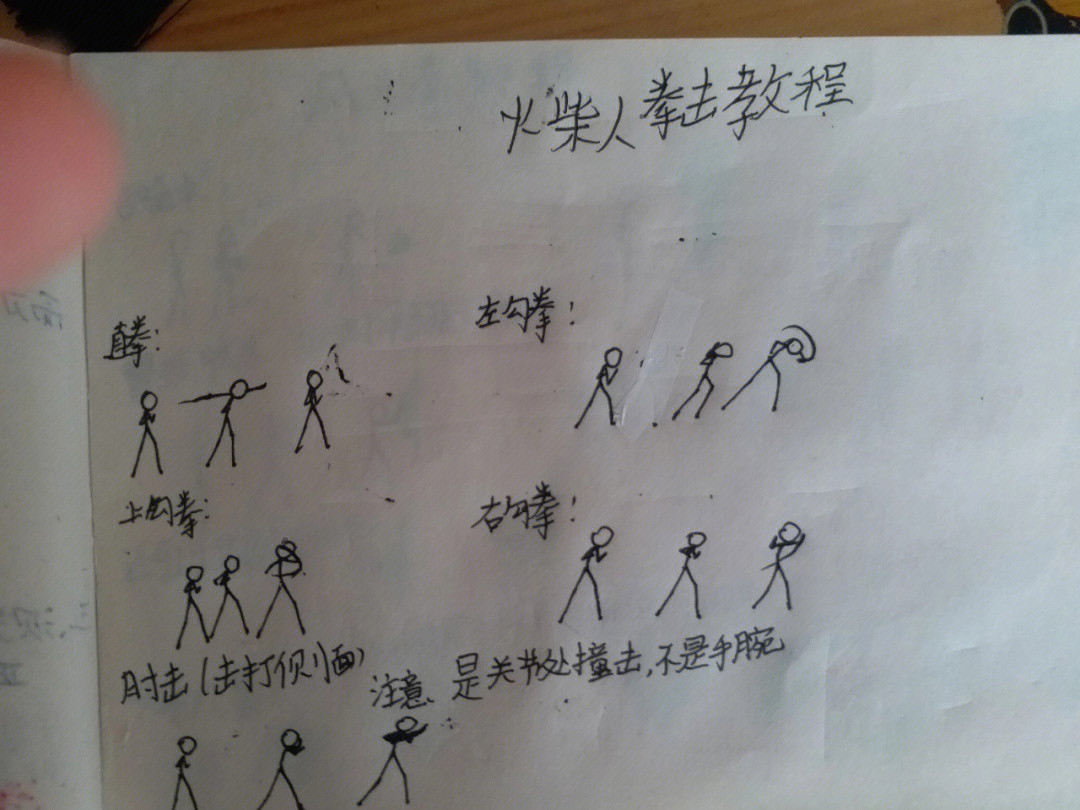 火柴人拳击教程
直拳:
左勾拳:
上勾拳:
右勾拳:
肘击(击打侧面)
注意、是关节处撞击,不是手腕